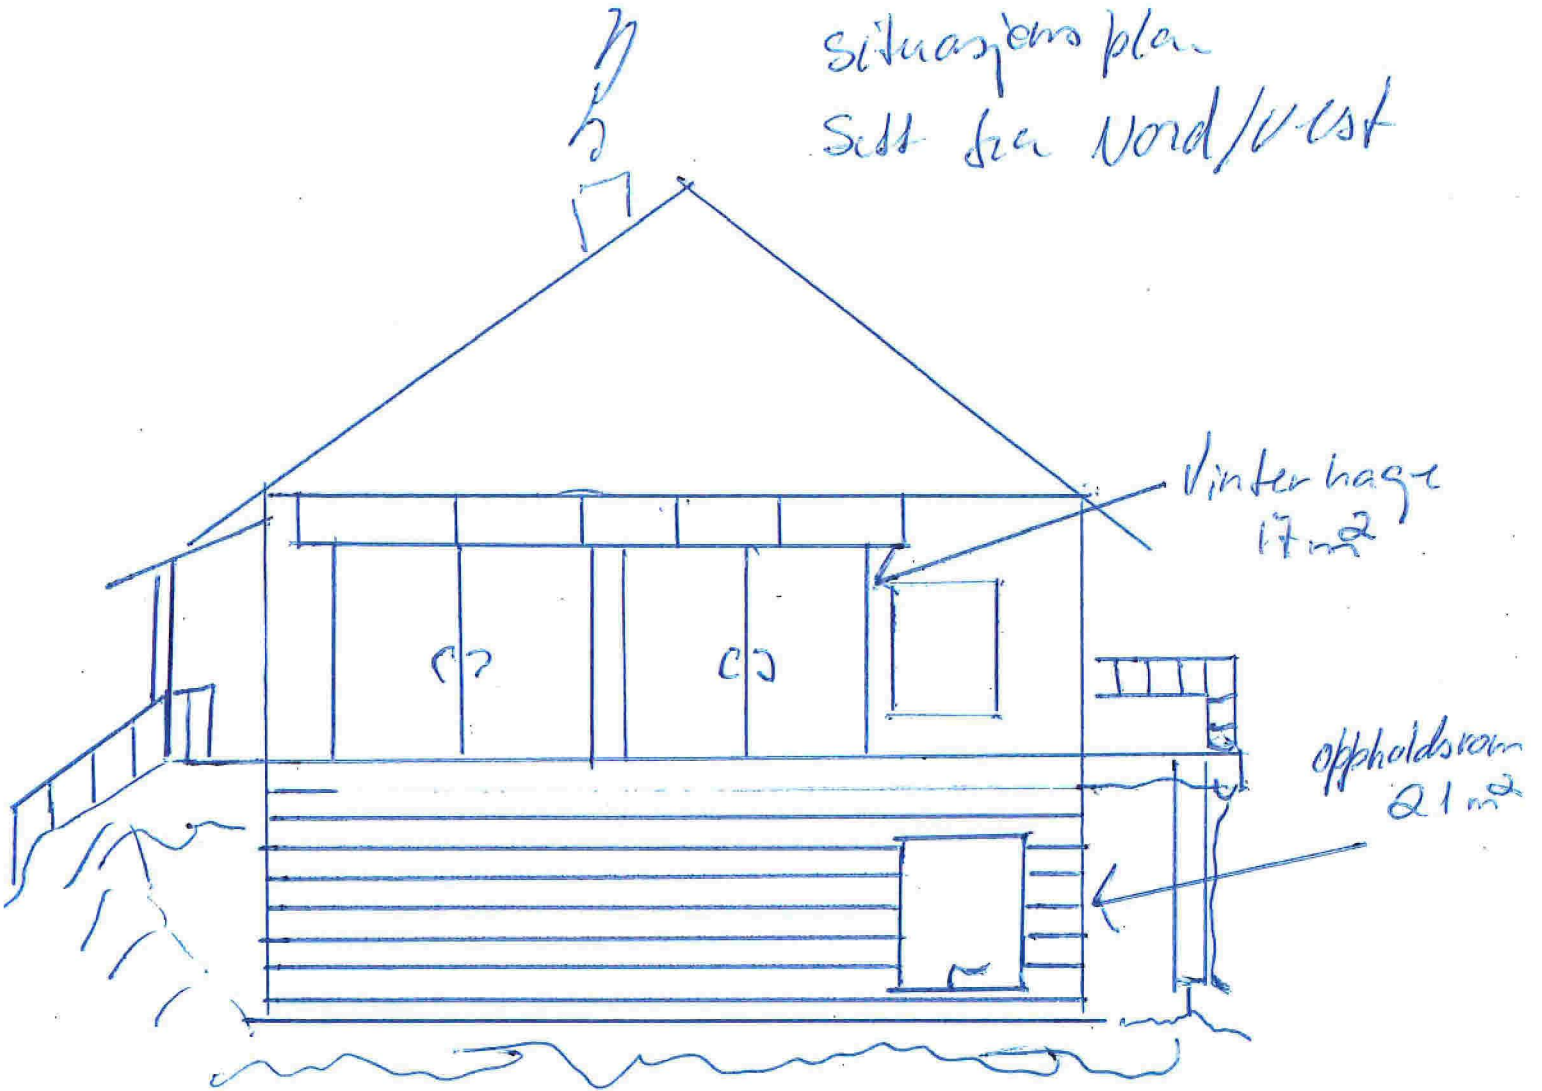 Situasjons plan
Sett fra Nord/Vest
Vinterhage
17 m²
oppholdsrom
21 m²